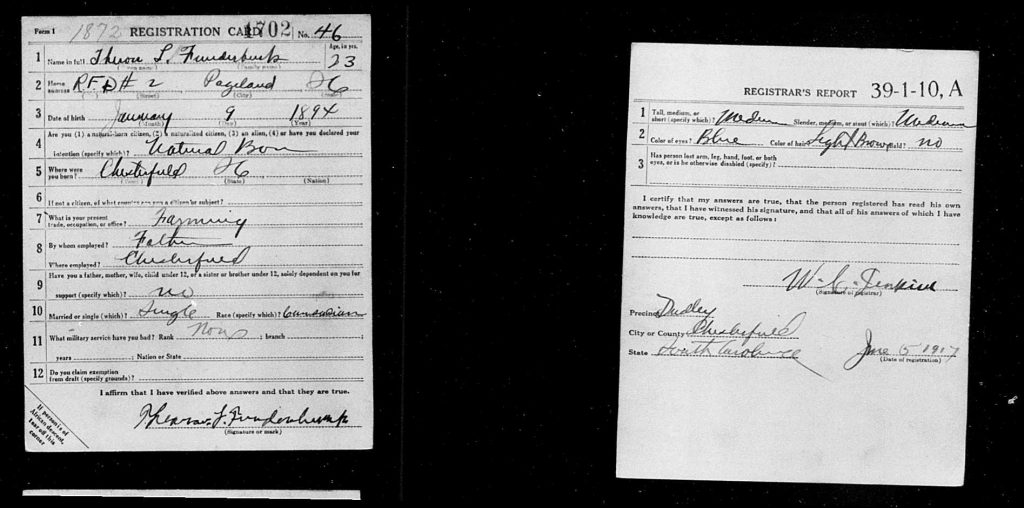 Form 1 1872 REGISTRATION CARD 1702 No. 46
1 Name in full Theron L. Funderburk Age, in yrs. 23
(Given name) (Family name)
2 Home address R.F.D # 2 Pageland SC
(No.) (Street) (City) (State)
3 Date of birth January 9 1894
(Month) (Day) (Year)
4 Are you (1) a natural-born citizen, (2) a naturalized citizen, (3) an alien, (4) or have you declared your
intention (specify which)? Natural Born
5 Where were you born? Chesterfield SC
(Town) (State) (Nation)
6 If not a citizen, of what country are you a citizen or subject?
7 What is your present trade, occupation, or office? Farming
8 By whom employed? Father
Where employed? Chesterfield
9 Have you a father, mother, wife, child under 12, or a sister or brother under 12, solely dependent on you for
support (specify which)? no
10 Married or single (which)? Single Race (specify which)? Caucasian
11 What military service have you had? Rank None ; branch ;
years ; Nation or State
12 Do you claim exemption from draft (specify grounds)?
I affirm that I have verified above answers and that they are true.
L. Funderburk
(Signature or mark)
If person is of African descent, tear off this corner
REGISTRAR'S REPORT 39-1-10, A
1 Tall, medium, or short (specify which)? Medium Slender, medium, or stout (which)? Medium
2 Color of eyes? Blue Color of hair? Light Brown Bald? no
3 Has person lost arm, leg, hand, foot, or both eyes, or is he otherwise disabled (specify)?
I certify that my answers are true, that the person registered has read his own
answers, that I have witnessed his signature, and that all of his answers of which I have
knowledge are true, except as follows:
W. C. Jenkins
(Signature of registrar)
Precinct Dudley
City or County Chesterfield
State South Carolina June 5 1917
(Date of registration)